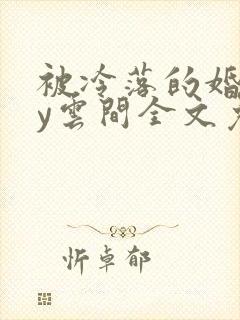 被冷落的婚
y雲間全文
忻卓郁